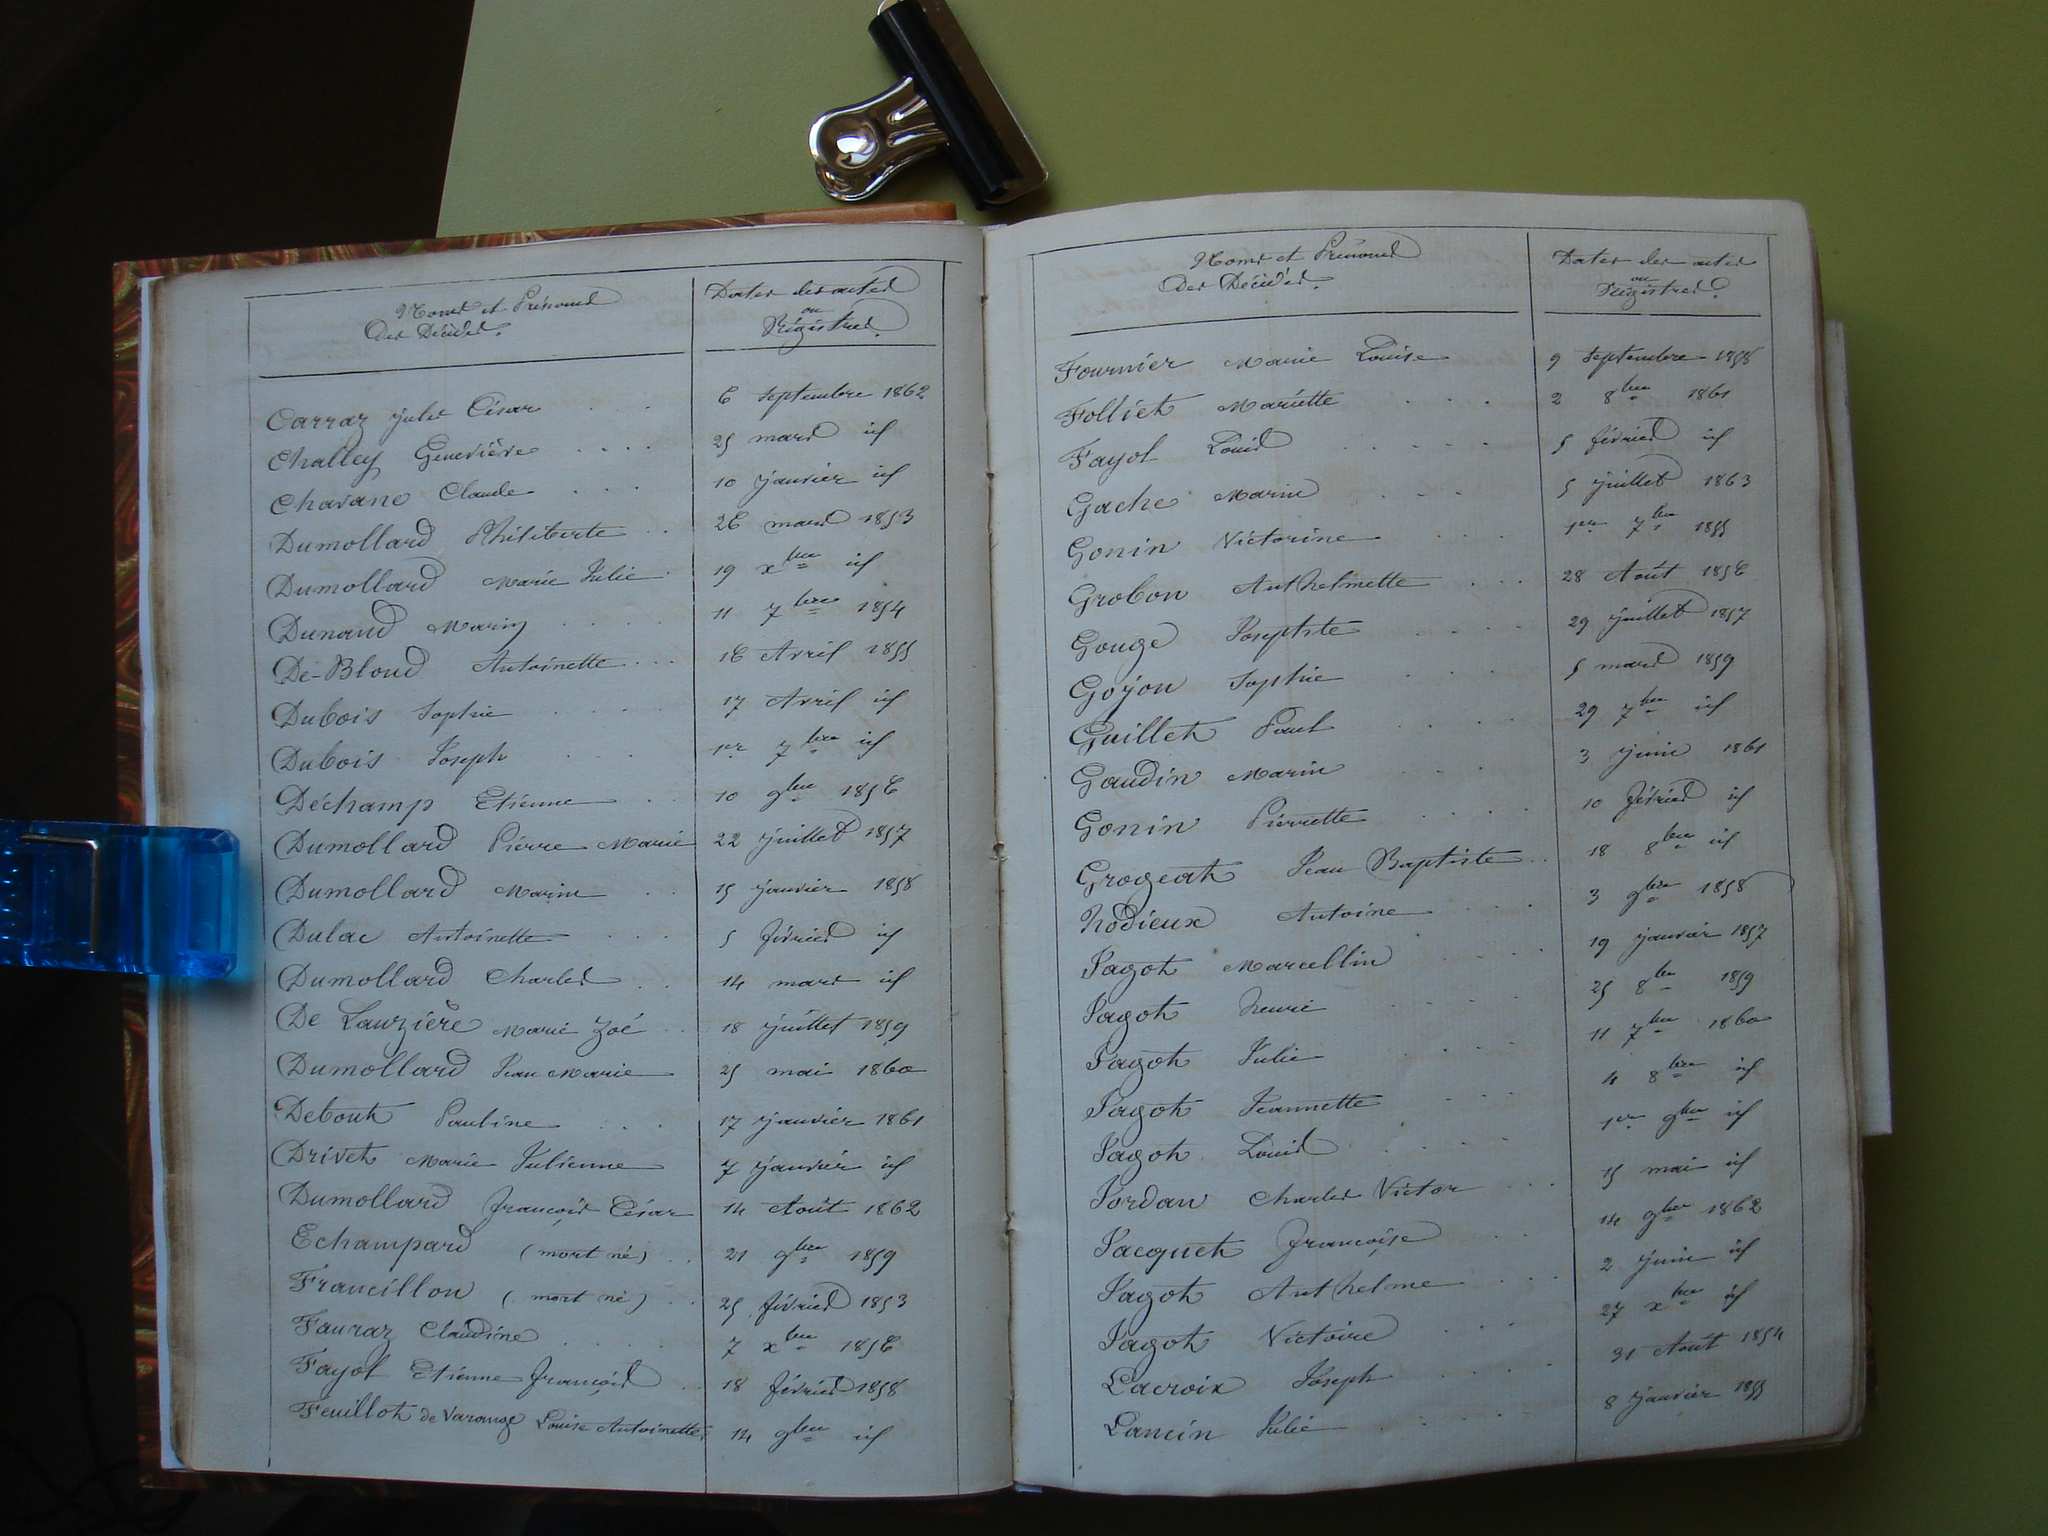 Noms et Prénoms
Des Décédés.
Dates des actes
ou
Régistres.
Carraz Jules César . . 6 septembre 1862
Challey Geneviève . . . . 25 mars id
Chavane Claude . . . 10 janvier id
Dumollard Philiberte . . 26 mars 1853
Dumollard Marie Julie . 19 xbre id
Dunand Marin . . . . 11 7bre 1854
De-Blond Antoinette . . . 16 Avril 1855
Dubois Sophie . . . . 17 Avril id
Dubois Joseph . . . 1er 7bre id
Déchamp Etienne . . 10 9bre 1856
Dumollard Pierre Marie 22 juillet 1857
Dumollard Marin . . 15 janvier 1858
Dulac Antoinette . . . 5 février id
Dumollard Charles . . 14 mars id
De Lauzière Marie Zoé . . 18 juillet 1859
Dumollard Jean Marie 25 mai 1860
Debout Pauline . . . 17 janvier 1861
Drivet Marie Julienne 7 janvier id
Dumollard François César 14 Août 1862
Echampard (mort né) . . 21 9bre 1859
Francillon (mort né) . . 25 février 1853
Fauraz Claudine . . . . 7 xbre 1856
Fayol Etienne François . . 18 février 1858
Feuillot de Varange Louise Antoinette 14 9bre id
Noms et Prénoms
Des Décédés.
Dates des actes
ou
Régistres.
Fournier Marie Louise 9 septembre 1858
Folliet Mariette . . . 2 8bre 1861
Fayol Louis . . . . . 5 février id
Gache Marin . . . 5 juillet 1863
Gonin Victorine . . . 1er 7bre 1855
Grobon Anthelmette . . . 28 Août 1856
Gouge Josephte . . . . 29 juillet 1857
Goyon Sophie . . . 5 mars 1859
Guillet Paul . . . . 29 7bre id
Gaudin Marin . . . 3 juin 1861
Gonin Pierrette . . . . 10 février id
Grogeat Jean Baptiste . . 18 8bre id
hodieux Antoine . . . 3 9bre 1858
Jagot Marcellin . . . 19 janvier 1857
Jagot henri . . . . 25 8bre 1859
Jagot Julie . . . . 11 7bre 1860
Jagot Jeannette . . . 4 8bre id
Jagot Louis . . . . 1er 9bre id
Jordan Charles Victor . . . 15 mai id
Jacquet Françoise . . 14 9bre 1862
Jagot Anthelme . . . 2 juin id
Jagot Victoire . . . 27 xbre id
Lacroix Joseph . . . . 31 Août 1854
Lancin Julie . . . . . 8 janvier 1855